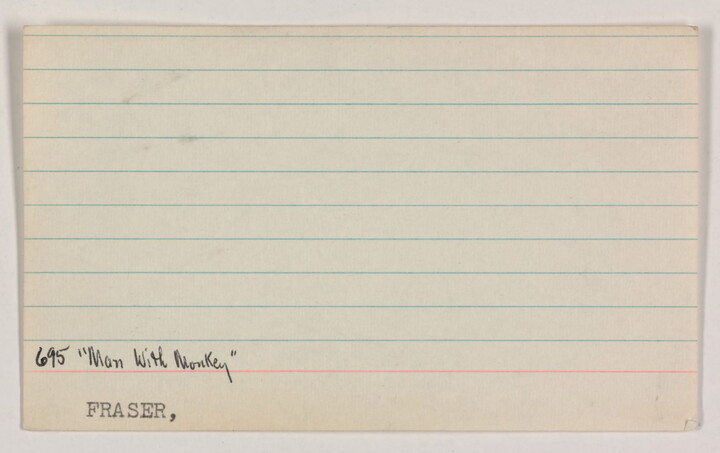 695 "Man With Monkey"
FRASER,